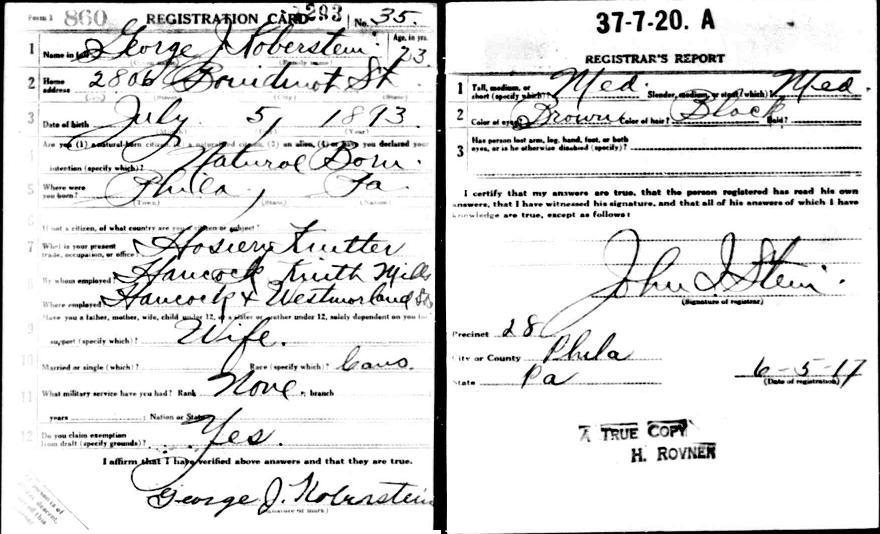 Form 1 860 REGISTRATION CARD 1293 No. 35
1 Name in full George J. Koberstein Age, in yrs. 23
(Family name)
2 Home address 2806 Boudinot St
(City) (State)
3 Date of birth July 5, 1893
(Month) (Year)
4 Are you (1) a natural-born citizen, (2) a naturalized citizen, (3) an alien, (4) or have you declared your
intention (specify which)? Natural Born.
5 Where were you born? Phila, Pa.
(Town) (State) (Nation)
6 If not a citizen, of what country are you a citizen or subject?
7 What is your present trade, occupation, or office? Hosiery Knitter
8 By whom employed? Hancock Knitt Mills
Where employed? Hancock & Westmorland Sts
9 Have you a father, mother, wife, child under 12, or a sister or brother under 12, solely dependent on you for
support (specify which)? Wife.
10 Married or single (which)? Race (specify which)? Caus.
11 What military service have you had? Rank None; branch
years; Nation or State
12 Do you claim exemption from draft (specify grounds)? Yes.
I affirm that I have verified above answers and that they are true.
George J. Koberstein
(Signature or mark)
37-7-20. A
REGISTRAR'S REPORT
1 Tall, medium, or short (specify which)? Med. Slender, medium, or stout (which)? Med
2 Color of eyes? Brown Color of hair? Black Bald?
3 Has person lost arm, leg, hand, foot, or both eyes, or is he otherwise disabled (specify)?
I certify that my answers are true, that the person registered has read his own
answers, that I have witnessed his signature, and that all of his answers of which I have
knowledge are true, except as follows:
John J. Stein.
(Signature of registrar)
Precinct 28
City or County Phila
State Pa 6-5-17
(Date of registration)
A TRUE COPY
H. ROVNER